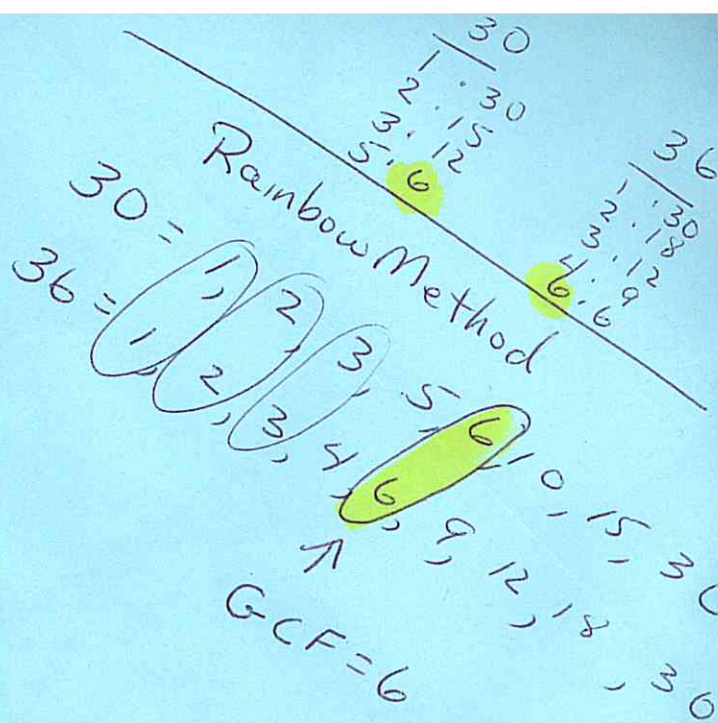 30
1 · 30
2 · 15
3 · 12
5 · 6
36
1 · 30
2 · 18
3 · 12
4 · 9
6 · 6
Rainbow Method
30 = 1, 2, 3, 5, 6, 10, 15, 30
36 = 1, 2, 3, 4, 6, 9, 12, 18, 36
GCF = 6